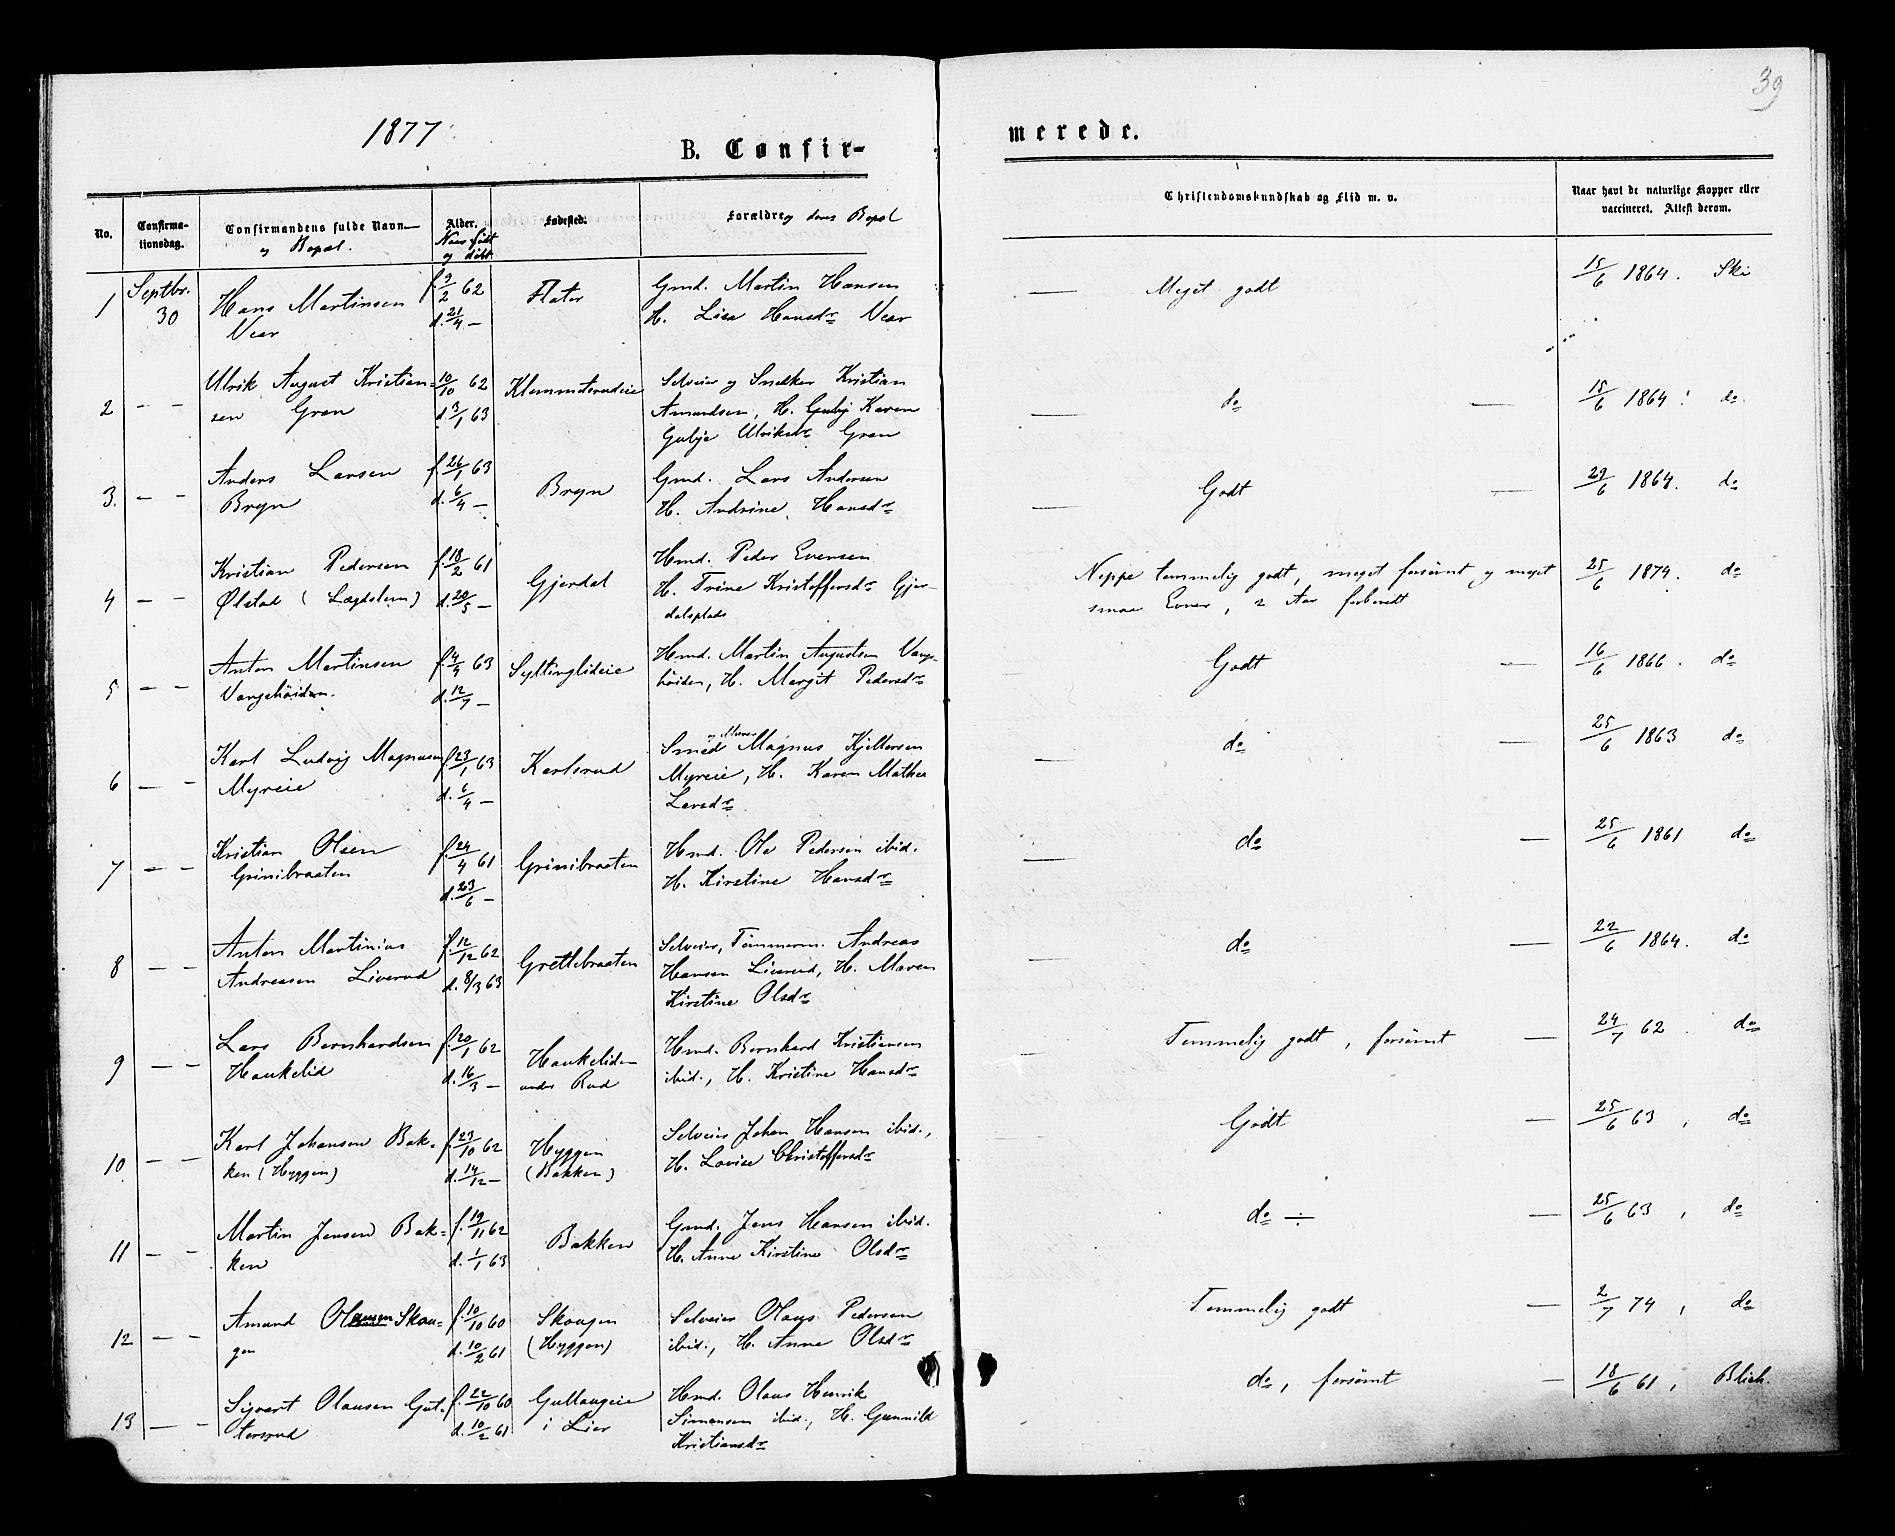 39
1877.
B. Confir-
merede.
No.
Confirma-
tionsdag.
Confirmandens fulde Navn
og Bopæl.
Alder.
Naar født
og døbt
Fødested.
Forældre og deres Bopæl
Christendomskundskab og Flid m. v.
Naar havt de naturlige Kopper eller
vaccineret. Attest derom.
1 Septbr. Hans Martinsen f. 9/2 62 Flater Gmd. Martin Hansen — Meget godt 15/6 1864. Ski
30 Vear d. 21/4 — H. Lisa Hansdr Vear
2 — — Ulrik August Kristian- 10/10 62 Klemmetsrudeie Selveier og Snedker Kristian — do — 15/6 1864 do
sen Gran d. 3/1 63 Amundsen, H. Karen
Ulriksdr Gran
3. — — Anders Larsen f. 26/1 63 Bryn Gmd. Lars Andersen — Godt — 29/6 1864. do
Bryn d. 6/4 — H. Andrine Hansdr
4 — — Kristian Pedersen f. 18/2 61 Gjerdal Hmd. Peder Evensen Neppe temmelig godt, meget forsømt og meget 25/6 1874. do
Ølstad (Lægdslem) d. 20/5 — H. Trine Kristoffersdr Gjer- smaa Evner, 2 Aar forberedt
dalsplads
5 — — Anton Martinsen f. 4/4 63 Syltinglideie Hmd. Martin Augustsen Vange- Godt — 16/6 1866. do
Vangehöiden. d. 12/7 — höiden, H. Margit Pedersdr
6 — — Karl Ludvig Magnusen f. 23/1 63 Karlsrud Smed Magnus Kjittersen — do — 25/6 1863 do
Myreie d. 6/4 — Myreie, H. Karen Mathea
Larsdr
7 — — Kristian Olsen f. 24/4 61 Grinibraaten Hmd. Ole Pedersen ibid. — do — 25/6 1861 do
Grinibraaten d. 23/6 — H. Kirstine Hansdr
8 — — Anton Martinius f. 12/12 62 Grettebraaten Selveier, Tömmerm. Andreas — do — 22/6 1864. do
Andreasen Liverud d. 8/3 63 Hansen Liverud, H. Maren
Kirstine Olsdr
9 — — Lars Bernhardsen f. 20/1 62 Haukeliden Hmd. Bernhard Kristiansen Temmelig godt, forsømt — 24/7 62. do
Haukelid d. 16/3 — under Rud ibid., H. Kristine Hansdr
10 — — Karl Johansen Bak- f. 23/10 62 Hyggen Selveier Johan Hansen ibid., Godt — 25/6 63, do
ken (Hyggen) d. 14/12 — (Bakken) H. Lovise Christoffersdr
11 — — Martin Jensen Bak- f. 19/11 62 Bakken Gmd. Jens Hansen ibid. do ÷ — 25/6 63, do
ken d. 1/1 63 H. Anne Kirstine Olsdr
12 — — Amund Olausen Skau- f. 10/10 60 Skaugen Selveier Olaus Pedersen Temmelig godt — 2/7 74, do
gen d. 10/2 61 (Hyggen) ibid., H. Anne Olsdr
13 — — Sigvart Olausen Gut- f. 22/10 60 Gullaugeie Hmd. Olaus Henrik do, forsømt — 18/6 61, Blich.
tersrud d. 10/2 61 i Lier Simensen ibid., H. Gunnild
Kristiansdr